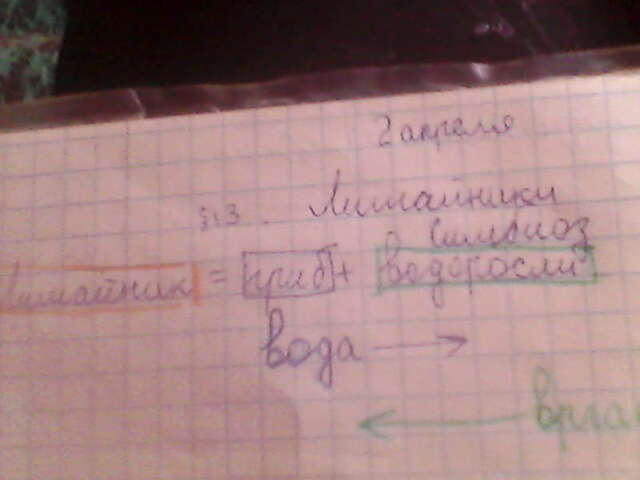 2 апреля
§13. Лишайники
Симбиоз
Лишайник = гриб + водоросли
вода →
←